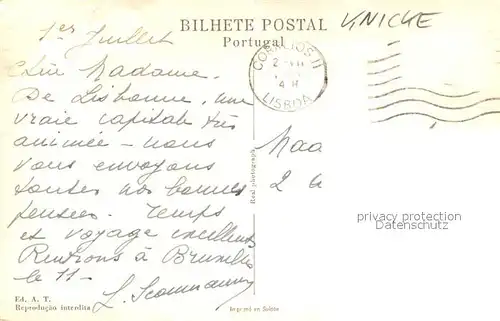 BILHETE POSTAL
Portugal
KNICKE
1er Juillet
Chère Madame.
De Lisbonne, une
vraie capitale très
animée - nous
vous envoyons
toutes nos bonnes
pensées. Temps
et voyage excellents
Rentrons à Bruxelles
le 11 -
L.
CORREIOS II
2 - VII
4 H
LISBOA
Real photograph
Maa
2
privacy protection
www.ansichtskarten-center.de
Ed. A. T.
Reprodução interdita
Imprimé en Suisse